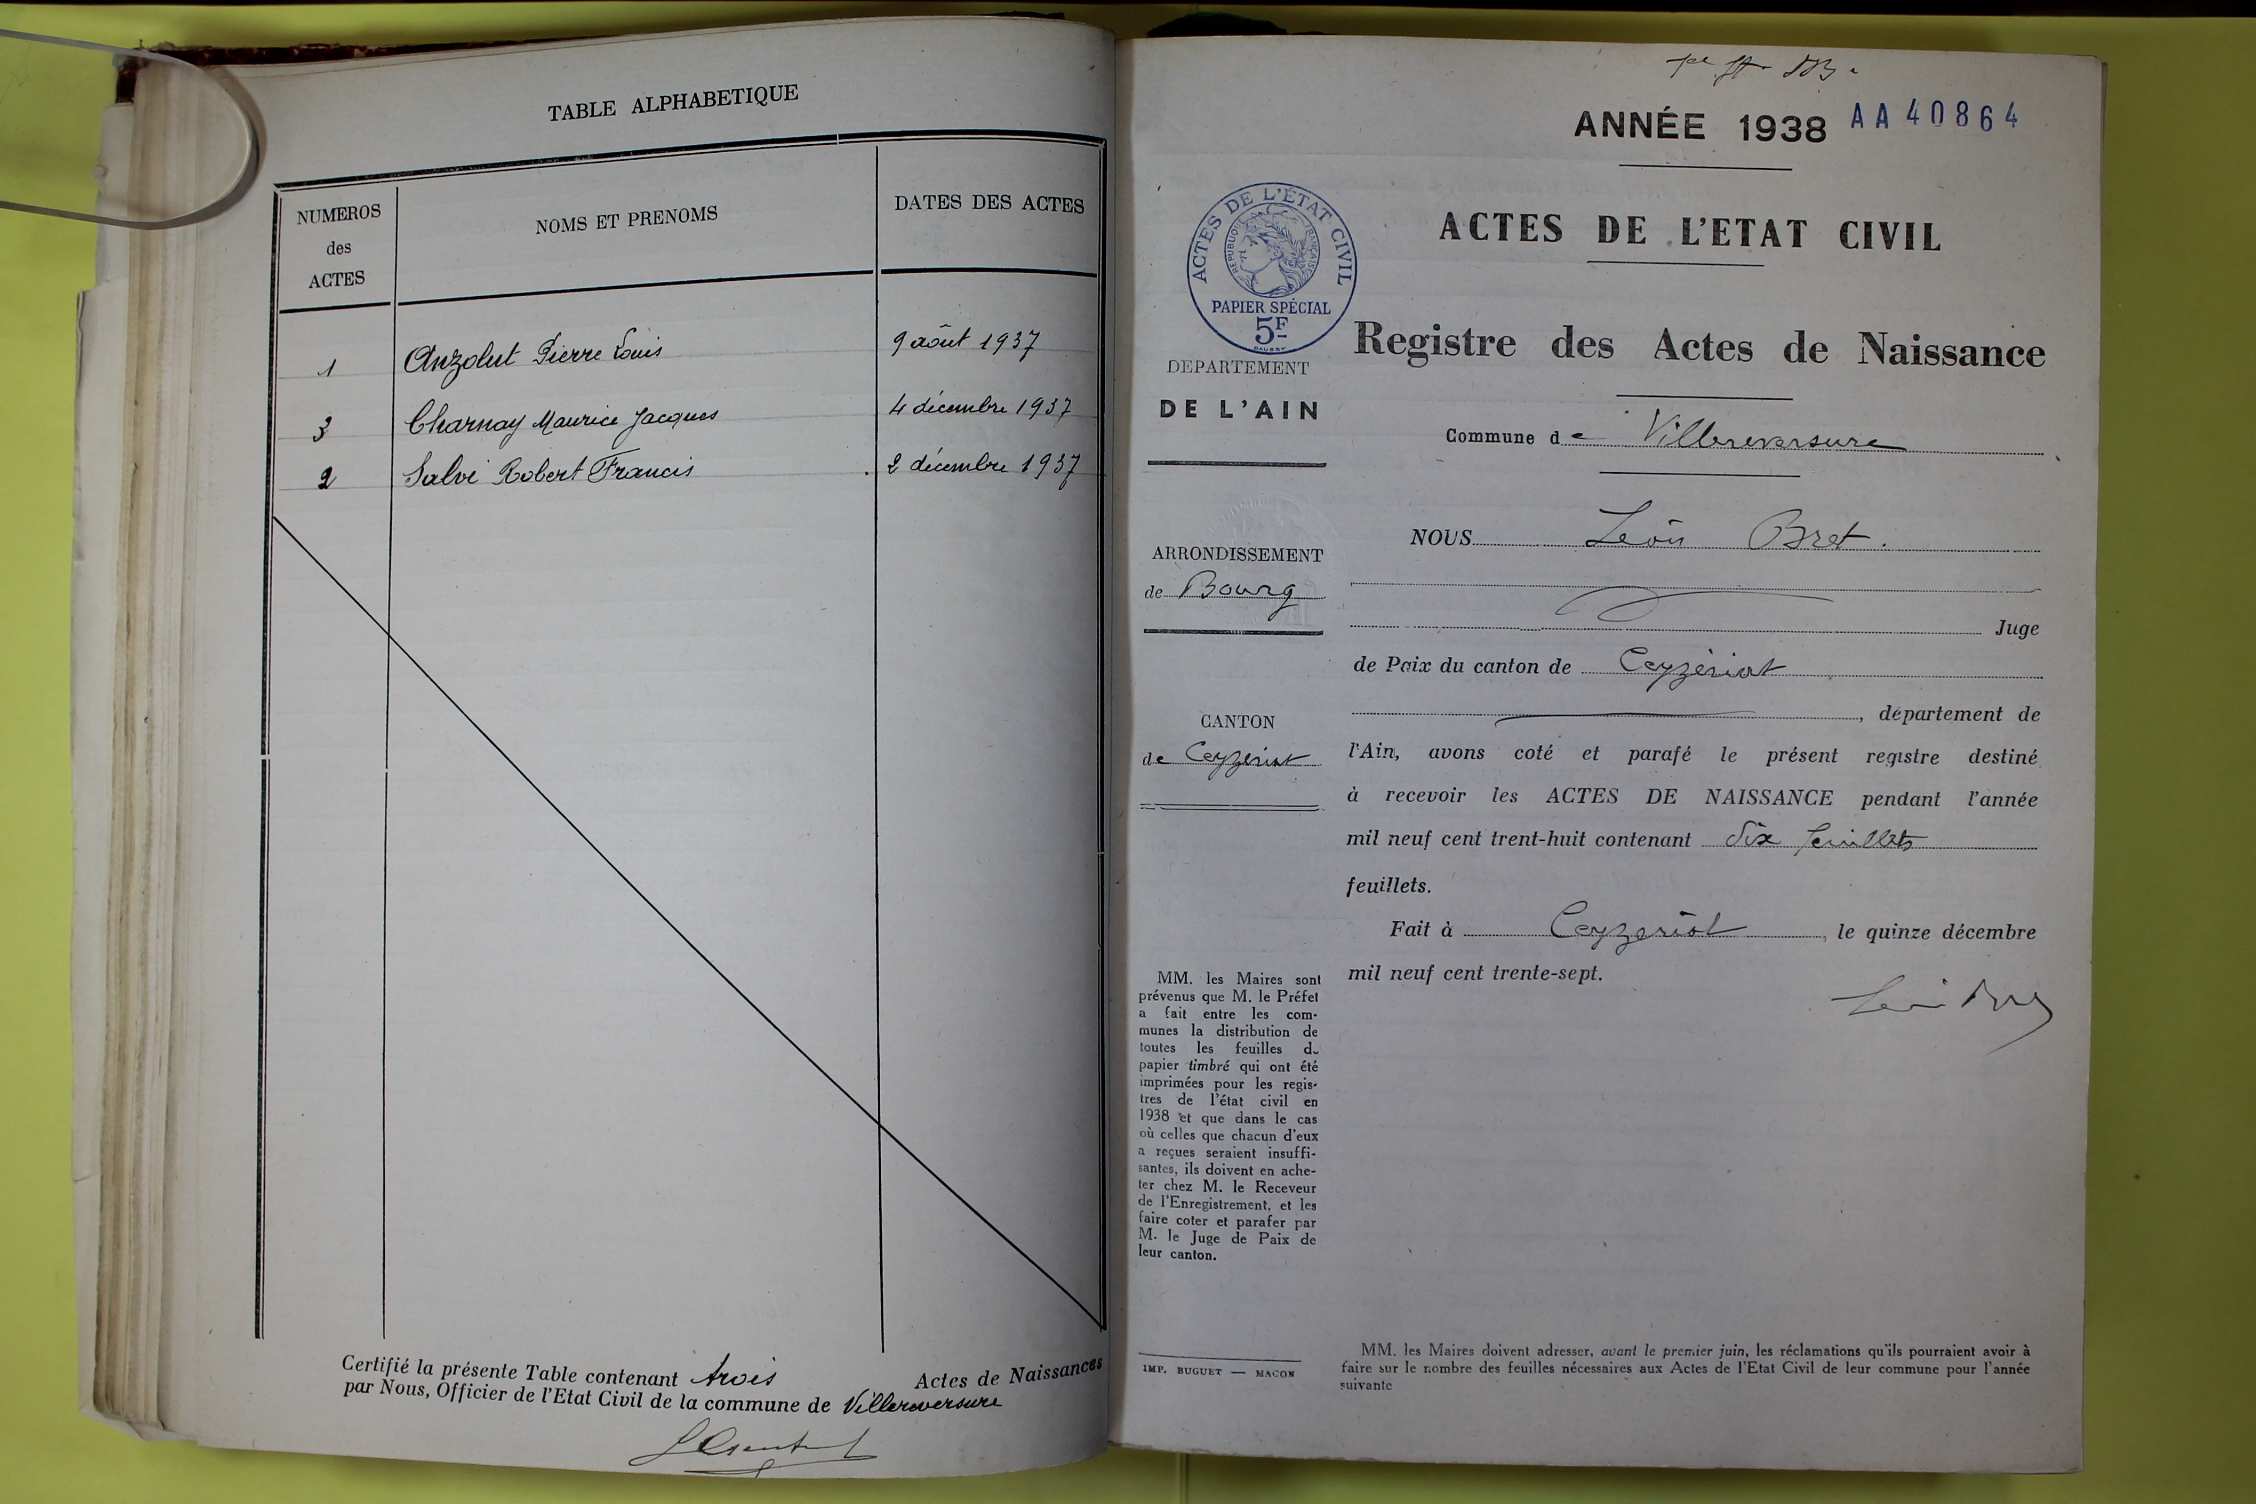 TABLE ALPHABETIQUE
NUMEROS
des
ACTES
NOMS ET PRENOMS
DATES DES ACTES
1 Anzolut Pierre Louis 9 août 1937
3 Charnay Maurice Jacques 4 décembre 1937
2 Salvi Robert Francis 2 décembre 1937
Certifié la présente Table contenant trois Actes de Naissances
par Nous, Officier de l'Etat Civil de la commune de Villereversure
ANNÉE 1938 AA 40864
ACTES DE L'ÉTAT CIVIL
RÉPUBLIQUE FRANÇAISE
PAPIER SPÉCIAL
5F
ACTES DE L'ETAT CIVIL
Registre des Actes de Naissance
DEPARTEMENT
DE L'AIN
Commune de Villereversure
ARRONDISSEMENT
de Bourg
CANTON
de Ceyzériat
NOUS Léon Bret.
Juge
de Paix du canton de Ceyzériat
, département de
l'Ain, avons coté et parafé le présent registre destiné
à recevoir les ACTES DE NAISSANCE pendant l'année
mil neuf cent trent-huit contenant dix feuillets
feuillets.
Fait à Ceyzeriat, le quinze décembre
mil neuf cent trente-sept.
MM. les Maires sont
prévenus que M. le Préfet
a fait entre les com-
munes la distribution de
toutes les feuilles de
papier timbré qui ont été
imprimées pour les regis-
tres de l'état civil en
1938 et que dans le cas
où celles que chacun d'eux
a reçues seraient insuffi-
santes, ils doivent en ache-
ter chez M. le Receveur
de l'Enregistrement, et les
faire coter et parafer par
M. le Juge de Paix de
leur canton.
IMP. BUGUET — MACON
MM. les Maires doivent adresser, avant le premier juin, les réclamations qu'ils pourraient avoir à
faire sur le nombre des feuilles nécessaires aux Actes de l'Etat Civil de leur commune pour l'année
suivante